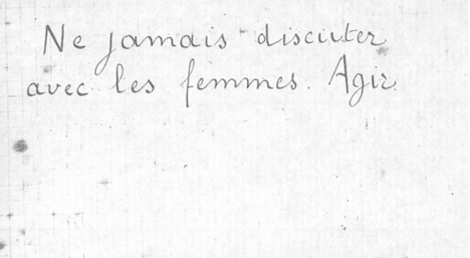 Ne jamais discuter
avec les femmes. Agir.